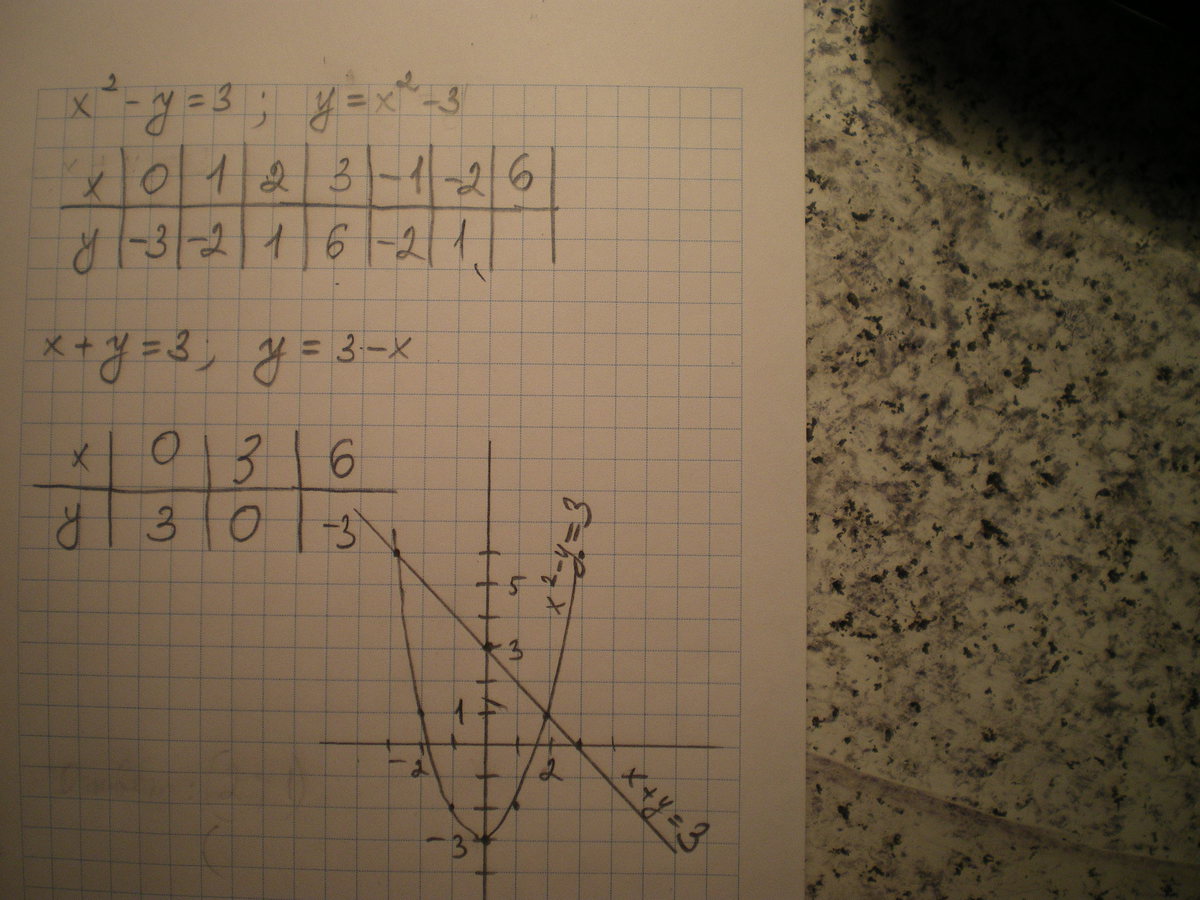 x² - y = 3 ; y = x² - 3
x | 0 | 1 | 2 | 3 | -1 | -2 | 6
y | -3 | -2 | 1 | 6 | -2 | 1 |
x + y = 3 ; y = 3 - x
x | 0 | 3 | 6
y | 3 | 0 | -3
x² - y = 3
5
3
1
-2 2
x + y = 3
-3